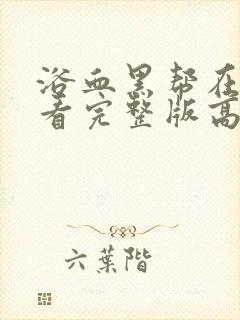 浴血黑帮在
看完整版高
六葉階